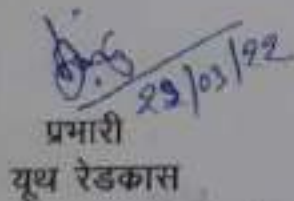 29/03/22
प्रभारी
यूथ रेडकास